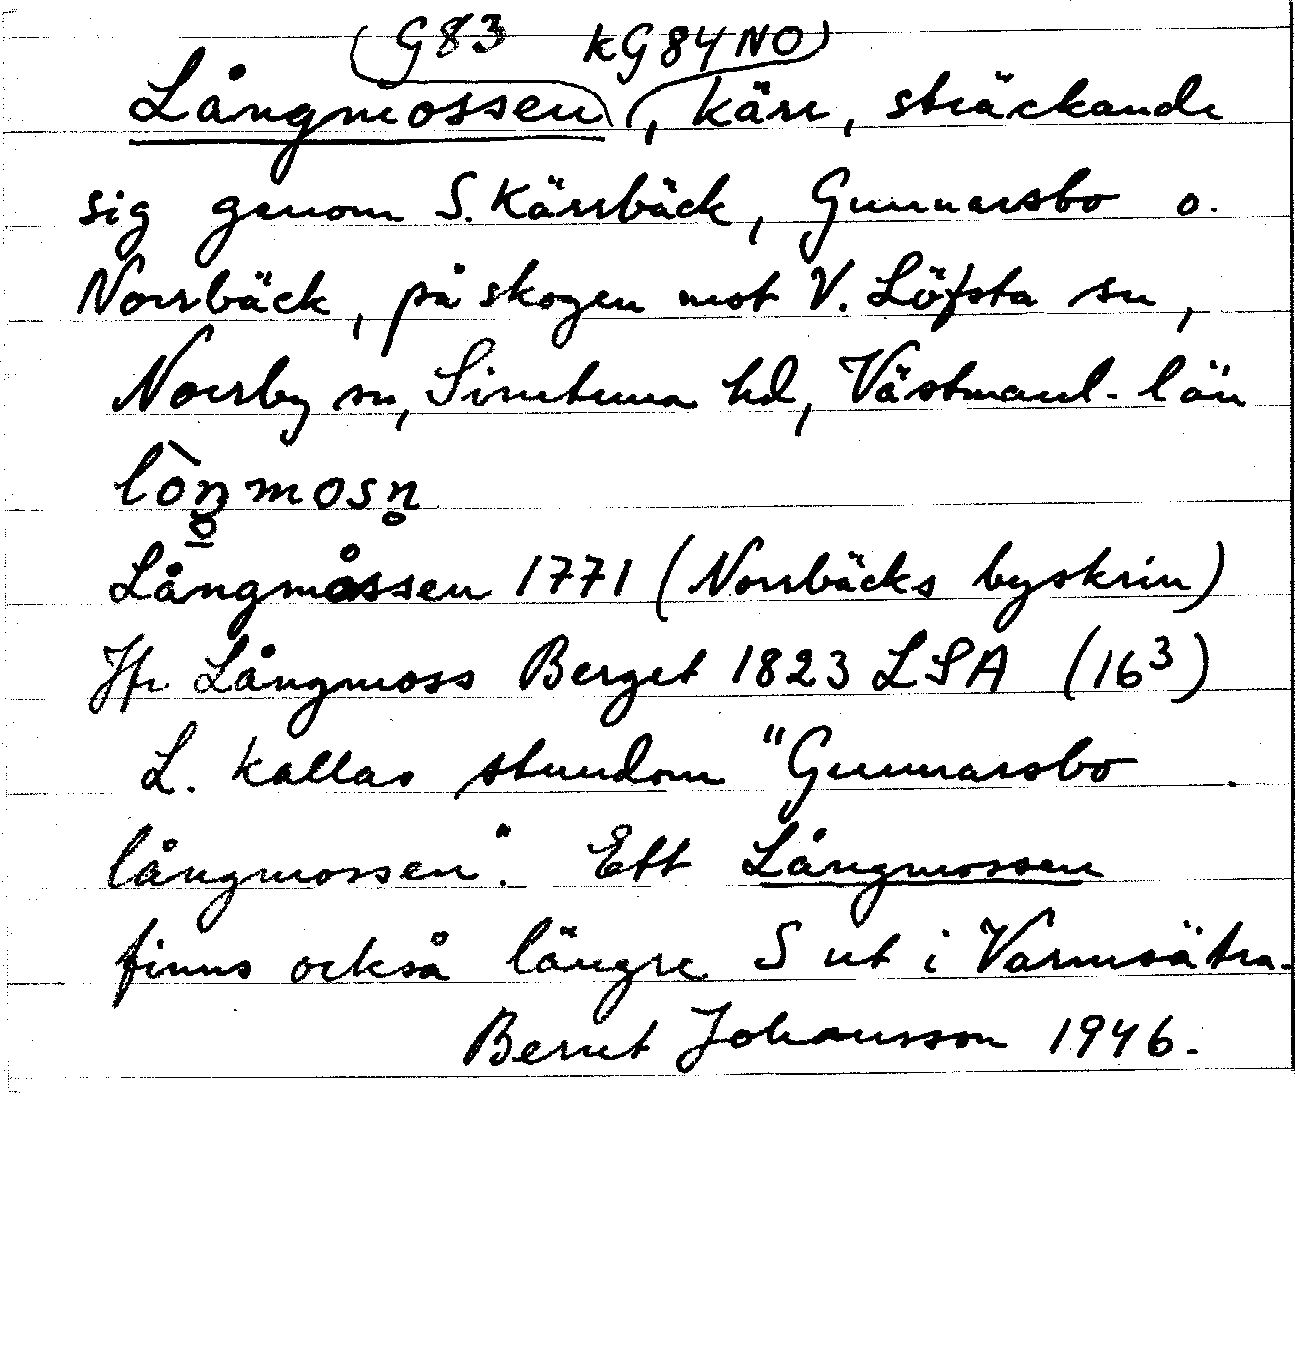 G83 kG84NO
Långmossen, kärr, sträckande
sig genom S. Kärrbäck, Gunnarsbo o.
Norrbäck, på skogen mot V. Löfsta sn,
Norrby sn, Simtuna hd, Västmanl. län
lòŋmosn̥
Långmåssen 1771 (Norrbäcks byskrin)
Jfr Långmoss Berget 1823 LSA (16³)
L. kallas stundom "Gunnarsbo
långmossen". Ett Långmossen
finns också längre S ut i Varmsätra.
Bernt Johansson 1946.